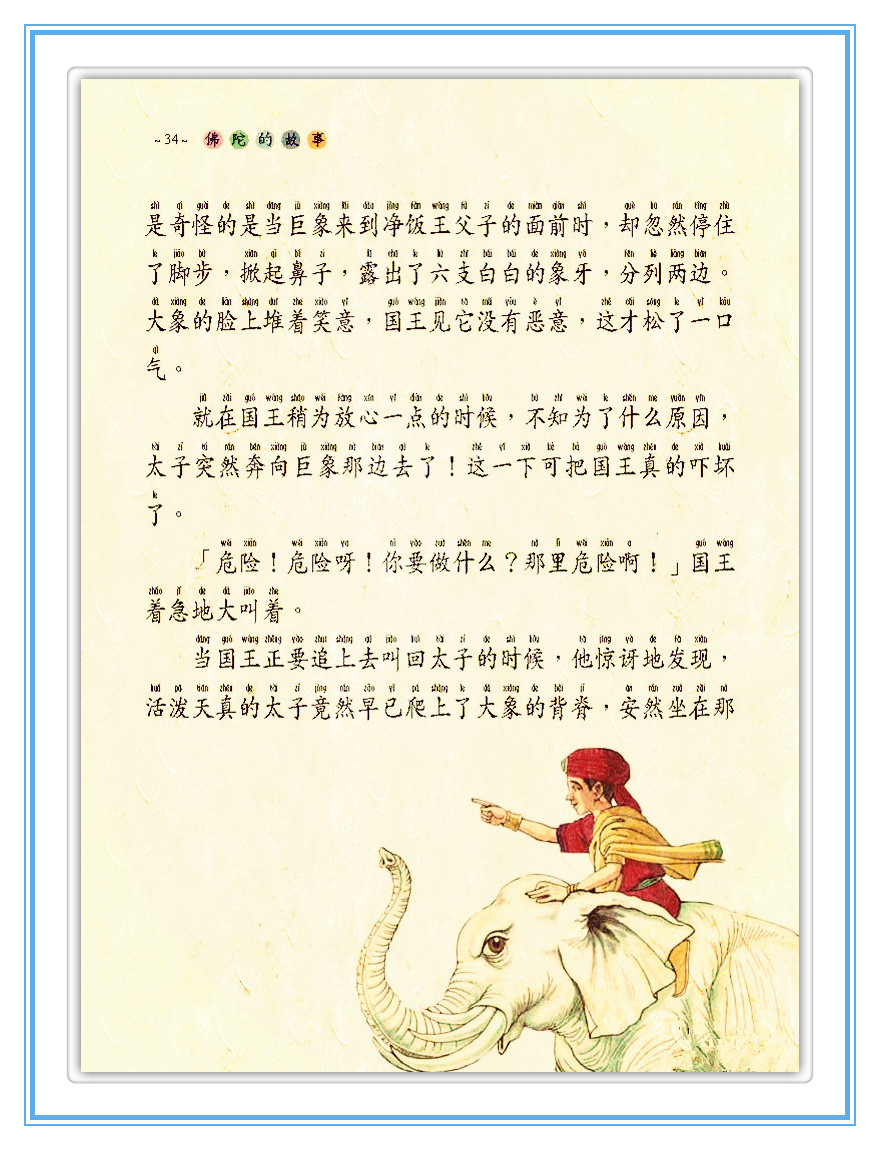 ~34~ 佛陀的故事
是奇怪的是当巨象来到净饭王父子的面前时，却忽然停住
了脚步，掀起鼻子，露出了六支白白的象牙，分列两边。
大象的脸上堆着笑意，国王见它没有恶意，这才松了一口
气。
就在国王稍为放心一点的时候，不知为了什么原因，
太子突然奔向巨象那边去了！这一下可把国王真的吓坏
了。
「危险！危险呀！你要做什么？那里危险啊！」国王
着急地大叫着。
当国王正要追上去叫回太子的时候，他惊讶地发现，
活泼天真的太子竟然早已爬上了大象的背脊，安然坐在那